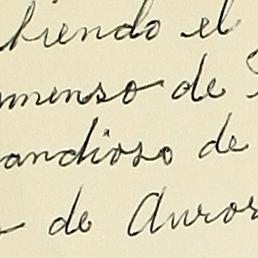 biendo el
nmenso de
andioso de
de Auror